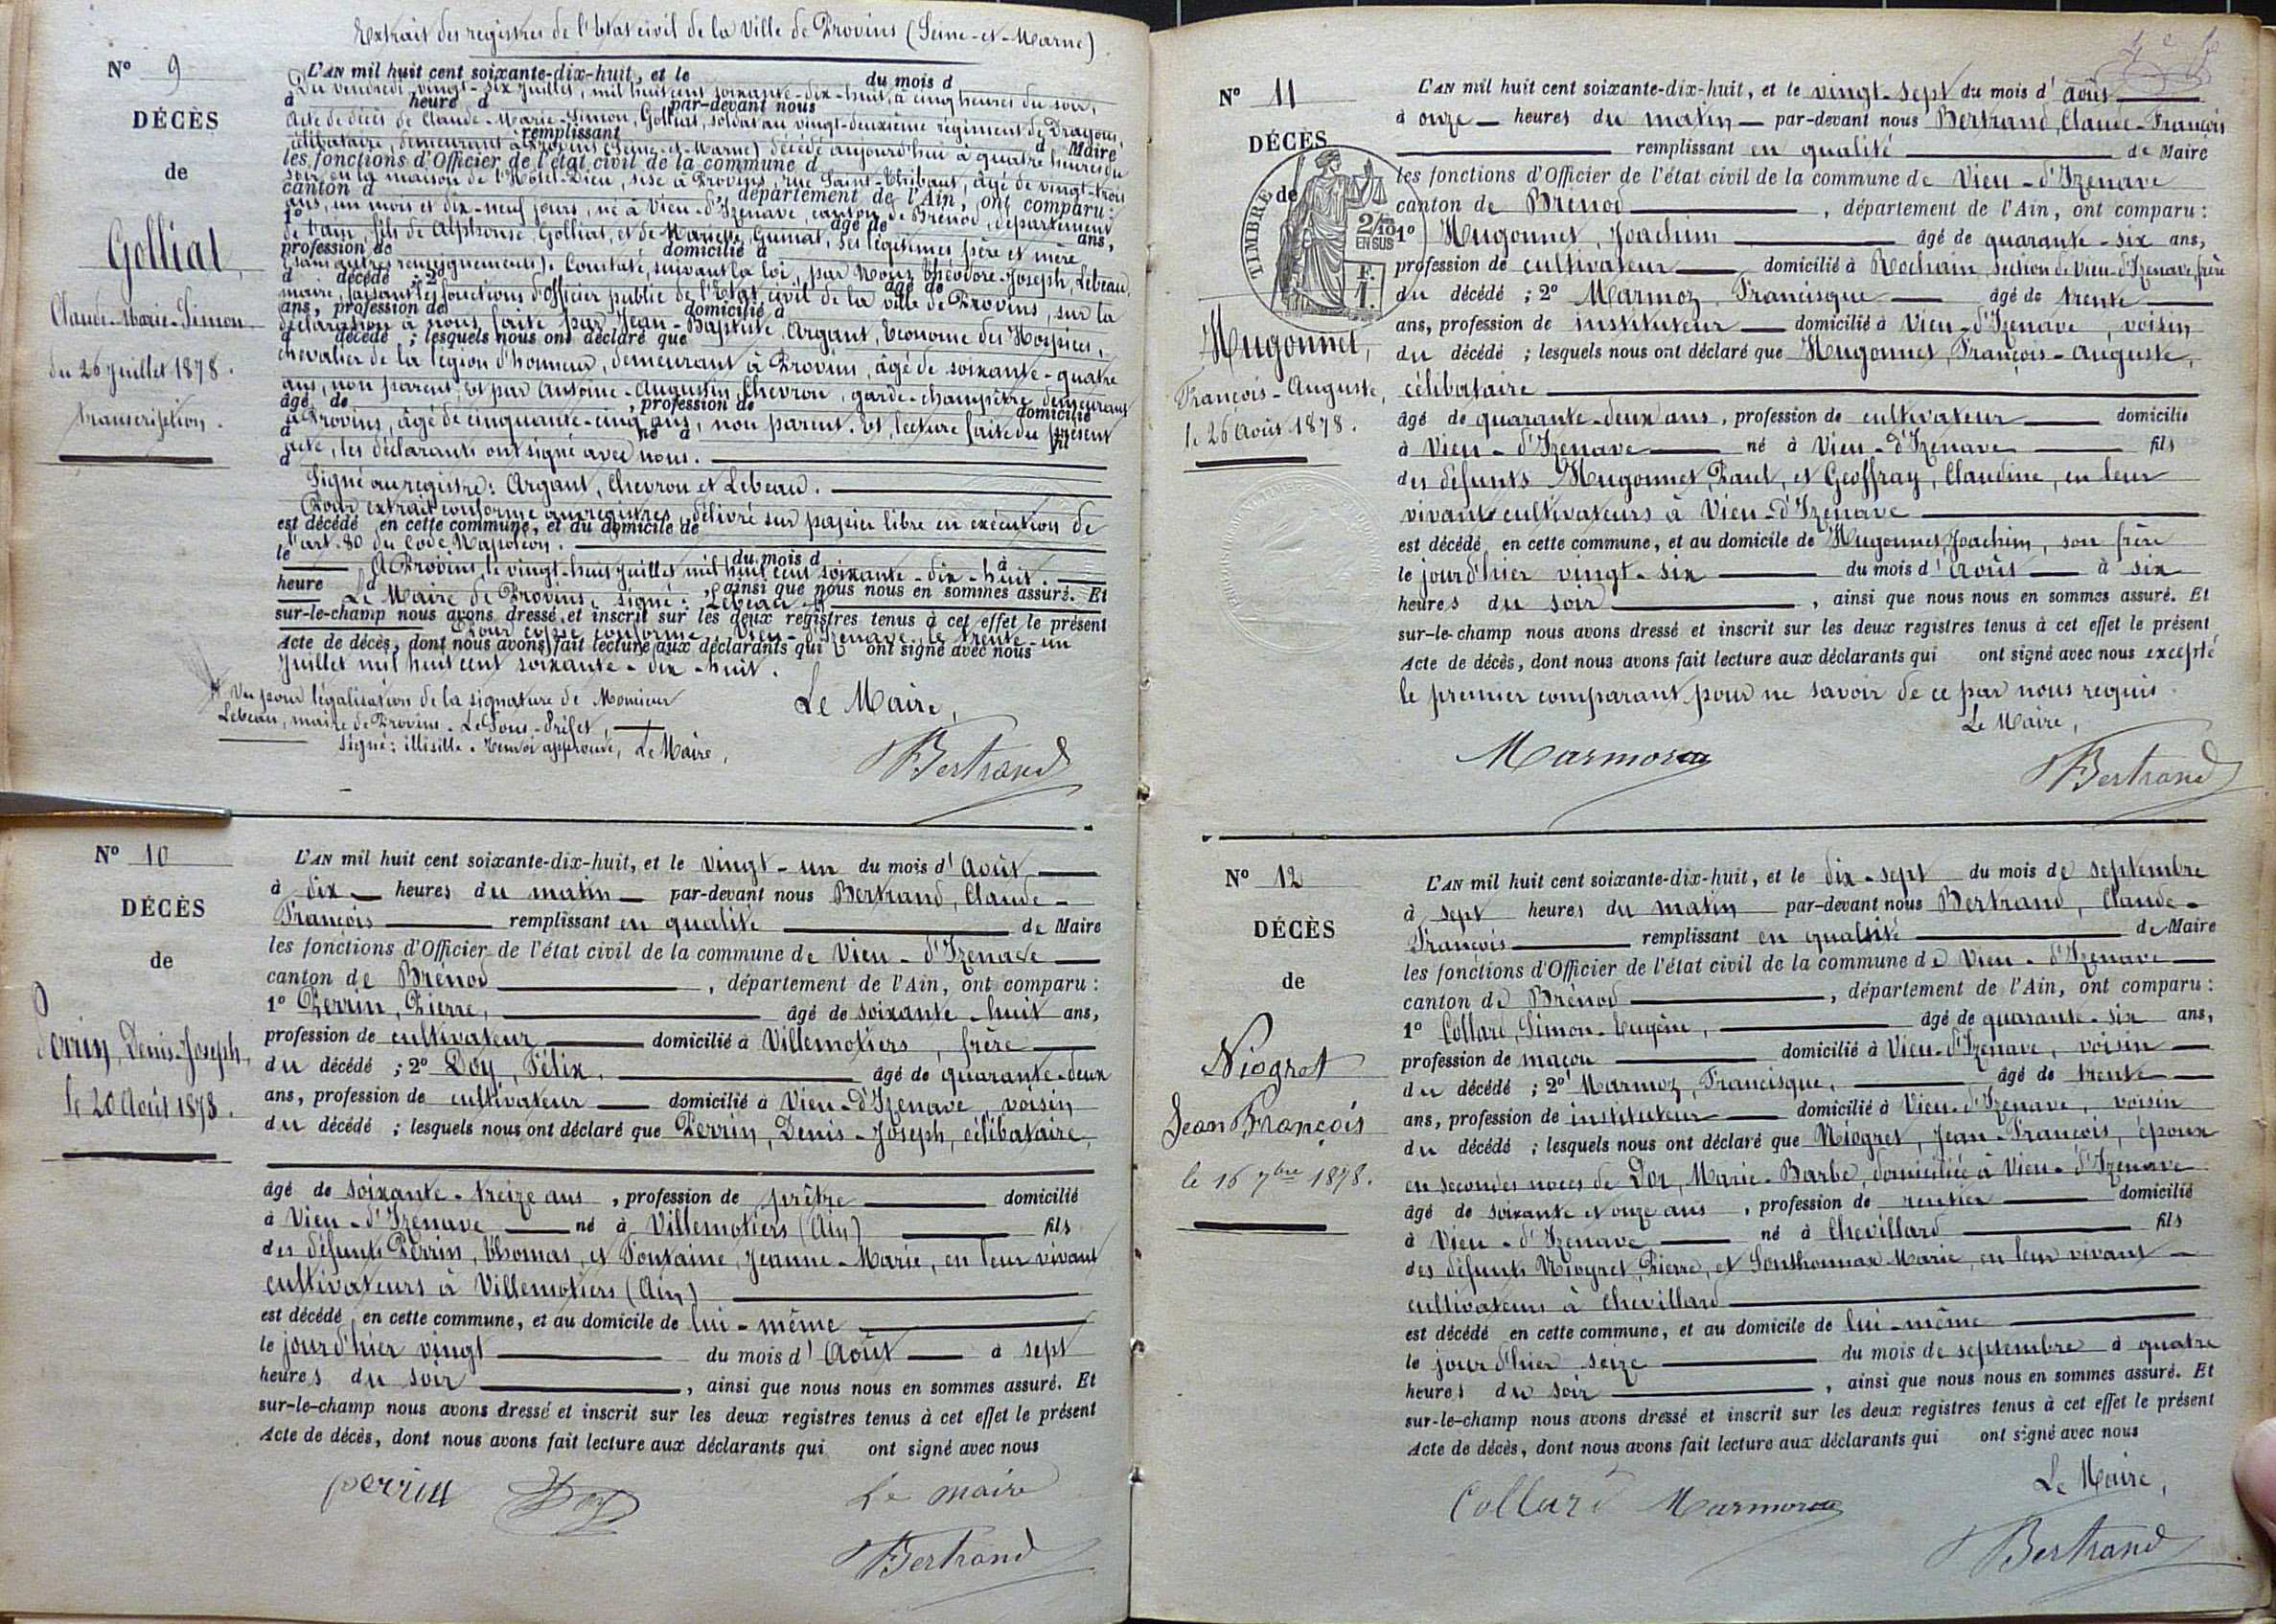 Extrait des registres de l'Etat civil de la Ville de Provins (Seine-et-Marne)
N° 9
DÉCÈS
de
Golliat,
Claude-Marie-Simon
du 26 Juillet 1878.
transcription.
L'AN mil huit cent soixante-dix-huit, et le du mois d
Du vendredi vingt-six Juillet, mil huit cent soixante-dix-huit, à cinq heures du soir,
à heure d par-devant nous
Acte de décès de Claude-Marie-Simon, Golliat, soldat au vingt-deuxième régiment de Dragons,
remplissant d Maire
célibataire, demeurant à Provins (Seine-et-Marne) décédé aujourd'hui à quatre heures du
les fonctions d'Officier de l'état civil de la commune d
soir, en la maison de l'Hôtel-Dieu, sise à Provins, rue Saint-Thibaut, âgé de vingt-trois
canton d département de l'Ain, ont comparu :
ans, un mois et dix-neuf jours, né à Vieu-d'Izenave, canton de Brénod, département
1° âgé de ans,
de l'Ain, fils de Alphonse, Golliat, et de Mariette, Guinat, ses légitimes père et mère
profession de domicilié à
(sans autres renseignements). Constaté, suivant la loi, par Nous Théodore-Joseph, Lebeau,
d décédé ; 2° âgé de
maire, faisant les fonctions d'Officier public de l'Etat civil de la ville de Provins, sur la
ans, profession de domicilié à
déclaration à nous faite par Jean-Baptiste Argant, Econome des Hospices,
d décédé ; lesquels nous ont déclaré que
chevalier de la légion d'honneur, demeurant à Provins, âgé de soixante-quatre
ans, non parent, et par Antoine-Augustin, Chevron, garde-champêtre demeurant
âgé de , profession de domicilié
à Provins, âgé de cinquante-cinq ans, non parent. Et, lecture faite du présent
à né à fil
acte, les déclarants ont signé avec nous.
d
Signé au registre : Argant, Chevron et Lebeau.
Pour extrait conforme aux registres, délivré sur papier libre en exécution de
est décédé en cette commune, et au domicile de
l'art. 80 du Code Napoléon.
le du mois d à
A Provins, le vingt-huit Juillet mil huit cent soixante-dix-huit.
heure d , ainsi que nous nous en sommes assuré. Et
Le Maire de Provins, signé : Lebeau
sur-le-champ nous avons dressé et inscrit sur les deux registres tenus à cet effet le présent
Pour copie conforme, Vieu-d'Izenave, le trente-un
Acte de décès, dont nous avons fait lecture aux déclarants qui ont signé avec nous
Juillet mil huit cent soixante-dix-huit.
Vu pour légalisation de la signature de Monsieur
Lebeau, maire de Provins. Le Sous-Préfet,
signé : illisible. Renvoi approuvé, Le Maire,
Le Maire,
Bertrand
N° 10
DÉCÈS
de
Perrin, Denis-Joseph,
le 20 Août 1878.
L'AN mil huit cent soixante-dix-huit, et le vingt-un du mois d'Août
à dix heures du matin par-devant nous Bertrand, Claude-
François remplissant en qualité de Maire
les fonctions d'Officier de l'état civil de la commune de Vieu-d'Izenave
canton de Brénod , département de l'Ain, ont comparu :
1° Perrin, Pierre, âgé de soixante-huit ans,
profession de cultivateur domicilié à Villemotiers, frère
du décédé ; 2° Doy, Félix, âgé de quarante-deux
ans, profession de cultivateur domicilié à Vieu-d'Izenave voisin
du décédé ; lesquels nous ont déclaré que Perrin, Denis-Joseph, célibataire,
âgé de soixante-treize ans , profession de prêtre domicilié
à Vieu-d'Izenave né à Villemotiers (Ain) fils
des défunts Perrin, Thomas, et Fontaine, Jeanne-Marie, en leur vivant
cultivateurs à Villemotiers (Ain)
est décédé en cette commune, et au domicile de lui-même
le jour d'hier vingt du mois d'Août à sept
heures du soir , ainsi que nous nous en sommes assuré. Et
sur-le-champ nous avons dressé et inscrit sur les deux registres tenus à cet effet le présent
Acte de décès, dont nous avons fait lecture aux déclarants qui ont signé avec nous
perrin Doy Le maire
Bertrand
N° 11
DÉCÈS
de
TIMBRE
2/10 EN SUS
F. 1.
Hugonnet,
François-Auguste,
le 26 Août 1878.
L'AN mil huit cent soixante-dix-huit, et le vingt-sept du mois d'août
à onze heures du matin par-devant nous Bertrand, Claude-François
remplissant en qualité de Maire
les fonctions d'Officier de l'état civil de la commune de Vieu-d'Izenave
canton de Brénod , département de l'Ain, ont comparu :
1° Hugonnet, Joachim âgé de quarante-six ans,
profession de cultivateur domicilié à Rochain, section de Vieu-d'Izenave, frère
du décédé ; 2° Marmoz, Francisque âgé de trente
ans, profession de instituteur domicilié à Vieu-d'Izenave, voisin
du décédé ; lesquels nous ont déclaré que Hugonnet, François-Auguste,
célibataire
âgé de quarante-deux ans, profession de cultivateur domicilié
à Vieu-d'Izenave né à Vieu-d'Izenave fils
des défunts Hugonnet, Paul, et Geoffray, Claudine, en leur
vivant cultivateurs à Vieu-d'Izenave
est décédé en cette commune, et au domicile de Hugonnet, Joachim, son frère
le jour d'hier vingt-six du mois d'août à six
heures du soir , ainsi que nous nous en sommes assuré. Et
sur-le-champ nous avons dressé et inscrit sur les deux registres tenus à cet effet le présent
Acte de décès, dont nous avons fait lecture aux déclarants qui ont signé avec nous excepté
le premier comparant pour ne savoir de ce par nous requis.
Le Maire,
Marmoz Bertrand
N° 12
DÉCÈS
de
Niogret
Jean François
le 16 7bre 1878.
L'AN mil huit cent soixante-dix-huit, et le dix-sept du mois de septembre
à sept heures du matin par-devant nous Bertrand, Claude-
François remplissant en qualité de Maire
les fonctions d'Officier de l'état civil de la commune de Vieu-d'Izenave
canton de Brénod , département de l'Ain, ont comparu :
1° Collard, Simon-Eugène, âgé de quarante-six ans,
profession de maçon domicilié à Vieu-d'Izenave, voisin
du décédé ; 2° Marmoz, Francisque, âgé de trente
ans, profession de instituteur domicilié à Vieu-d'Izenave, voisin
du décédé ; lesquels nous ont déclaré que Niogret, Jean-François, époux
en secondes noces de Doy, Marie-Barbe, domiciliée à Vieu-d'Izenave
âgé de soixante et onze ans , profession de rentier domicilié
à Vieu-d'Izenave né à Chevillard fils
des défunts Niogret, Pierre, et Sonthonnax Marie, en leur vivant
cultivateurs à Chevillard
est décédé en cette commune, et au domicile de lui-même
le jour d'hier seize du mois de septembre à quatre
heures du soir , ainsi que nous nous en sommes assuré. Et
sur-le-champ nous avons dressé et inscrit sur les deux registres tenus à cet effet le présent
Acte de décès, dont nous avons fait lecture aux déclarants qui ont signé avec nous
Le Maire,
Collard Marmoz
Bertrand